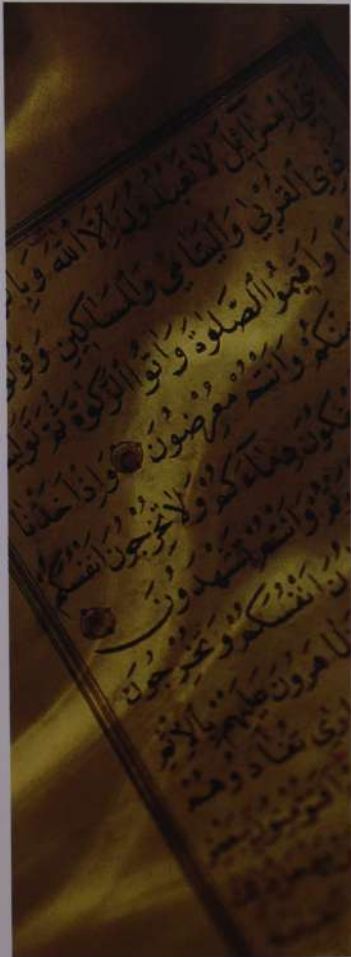 بَنِي اِسْرَآئِلَ لَا تَعْبُدُونَ اِلَّا اللهَ وَبِالْ
ذِي الْقُرْبٰى وَالْيَتَامٰى وَالْمَسَاكِينِ وَقُولُو
وَاَقِيمُوا الصَّلٰوةَ وَاٰتُوا الزَّكٰوةَ ثُمَّ تَوَلَّيْ
مِنْكُمْ وَاَنْتُمْ مُعْرِضُونَ وَاِذْ اَخَذْنَا
تَسْفِكُونَ دِمَآءَكُمْ وَلَا تُخْرِجُونَ اَنْفُسَكُمْ
وَاَنْتُمْ تَشْهَدُونَ
اَنْفُسَكُمْ وَتُخْرِجُونَ
تَظَاهَرُونَ عَلَيْهِمْ بِالْاِثْمِ
تُفَادُوهُمْ